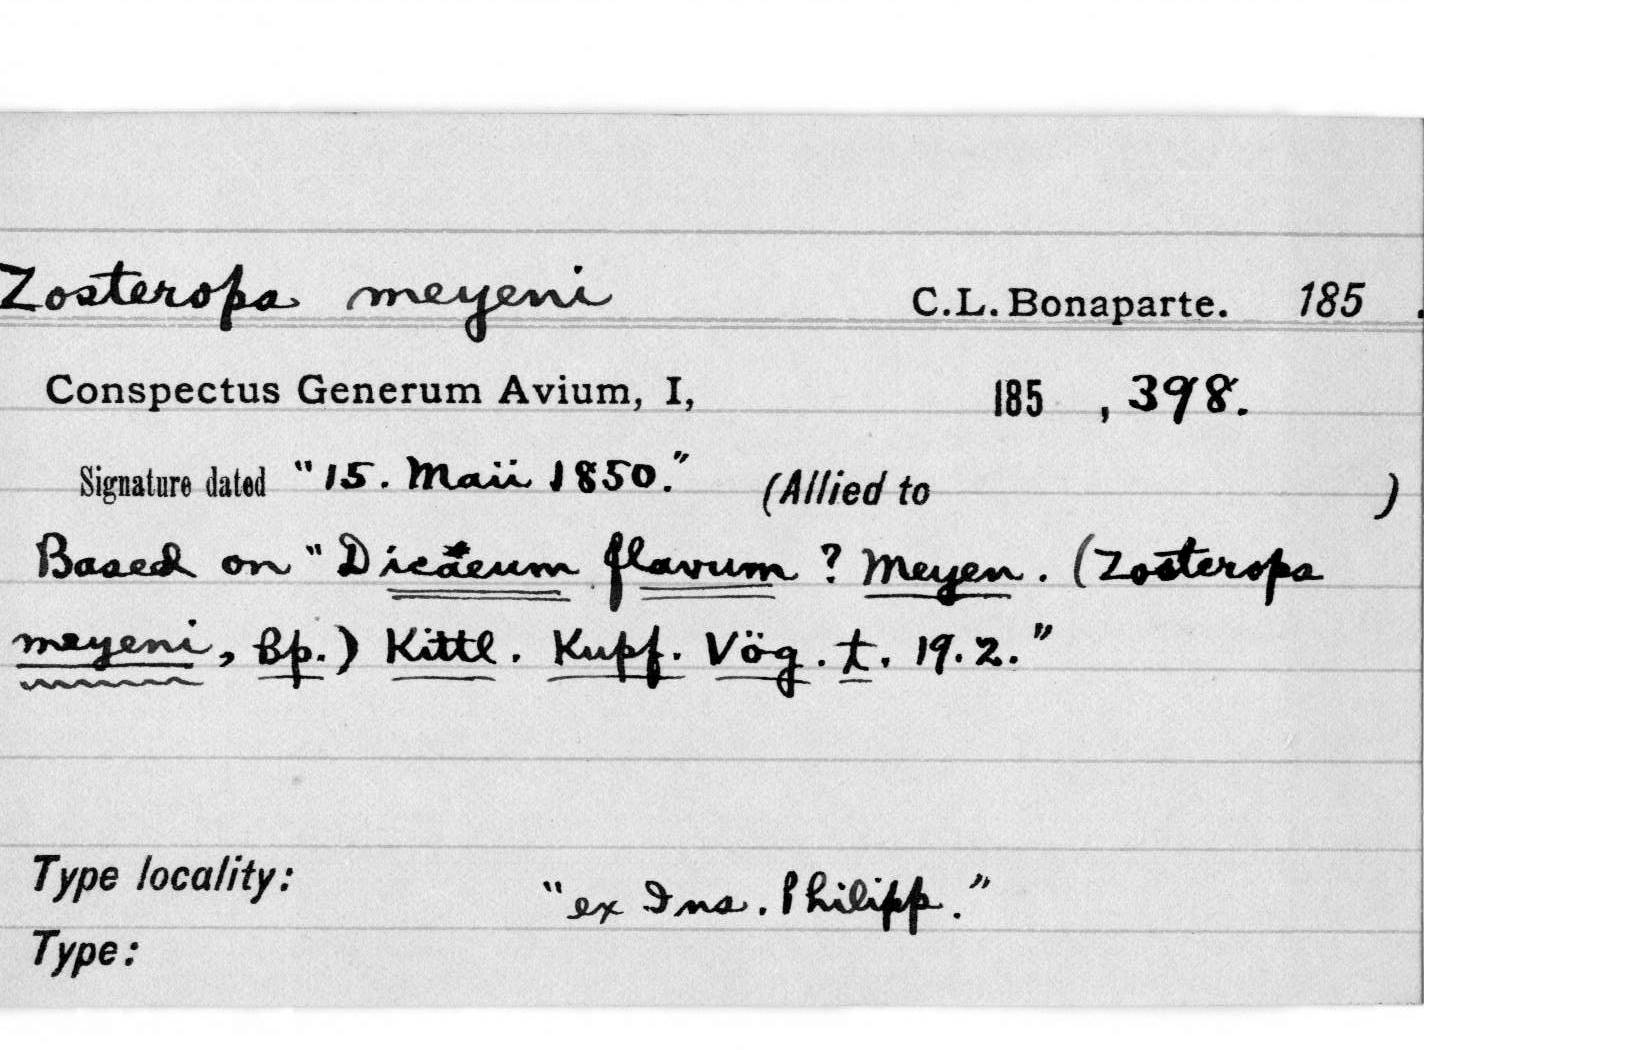 Zosterops meyeni C.L. Bonaparte. 185 .
Conspectus Generum Avium, I, 185 , 398.
Signature dated "15. Maii 1850." (Allied to )
Based on "Dicaeum flavum ? Meyen. (Zosterops
meyeni, Bp.) Kittl. Kupf. Vög. t. 19. 2."
Type locality: "ex Ins. Philipp."
Type: